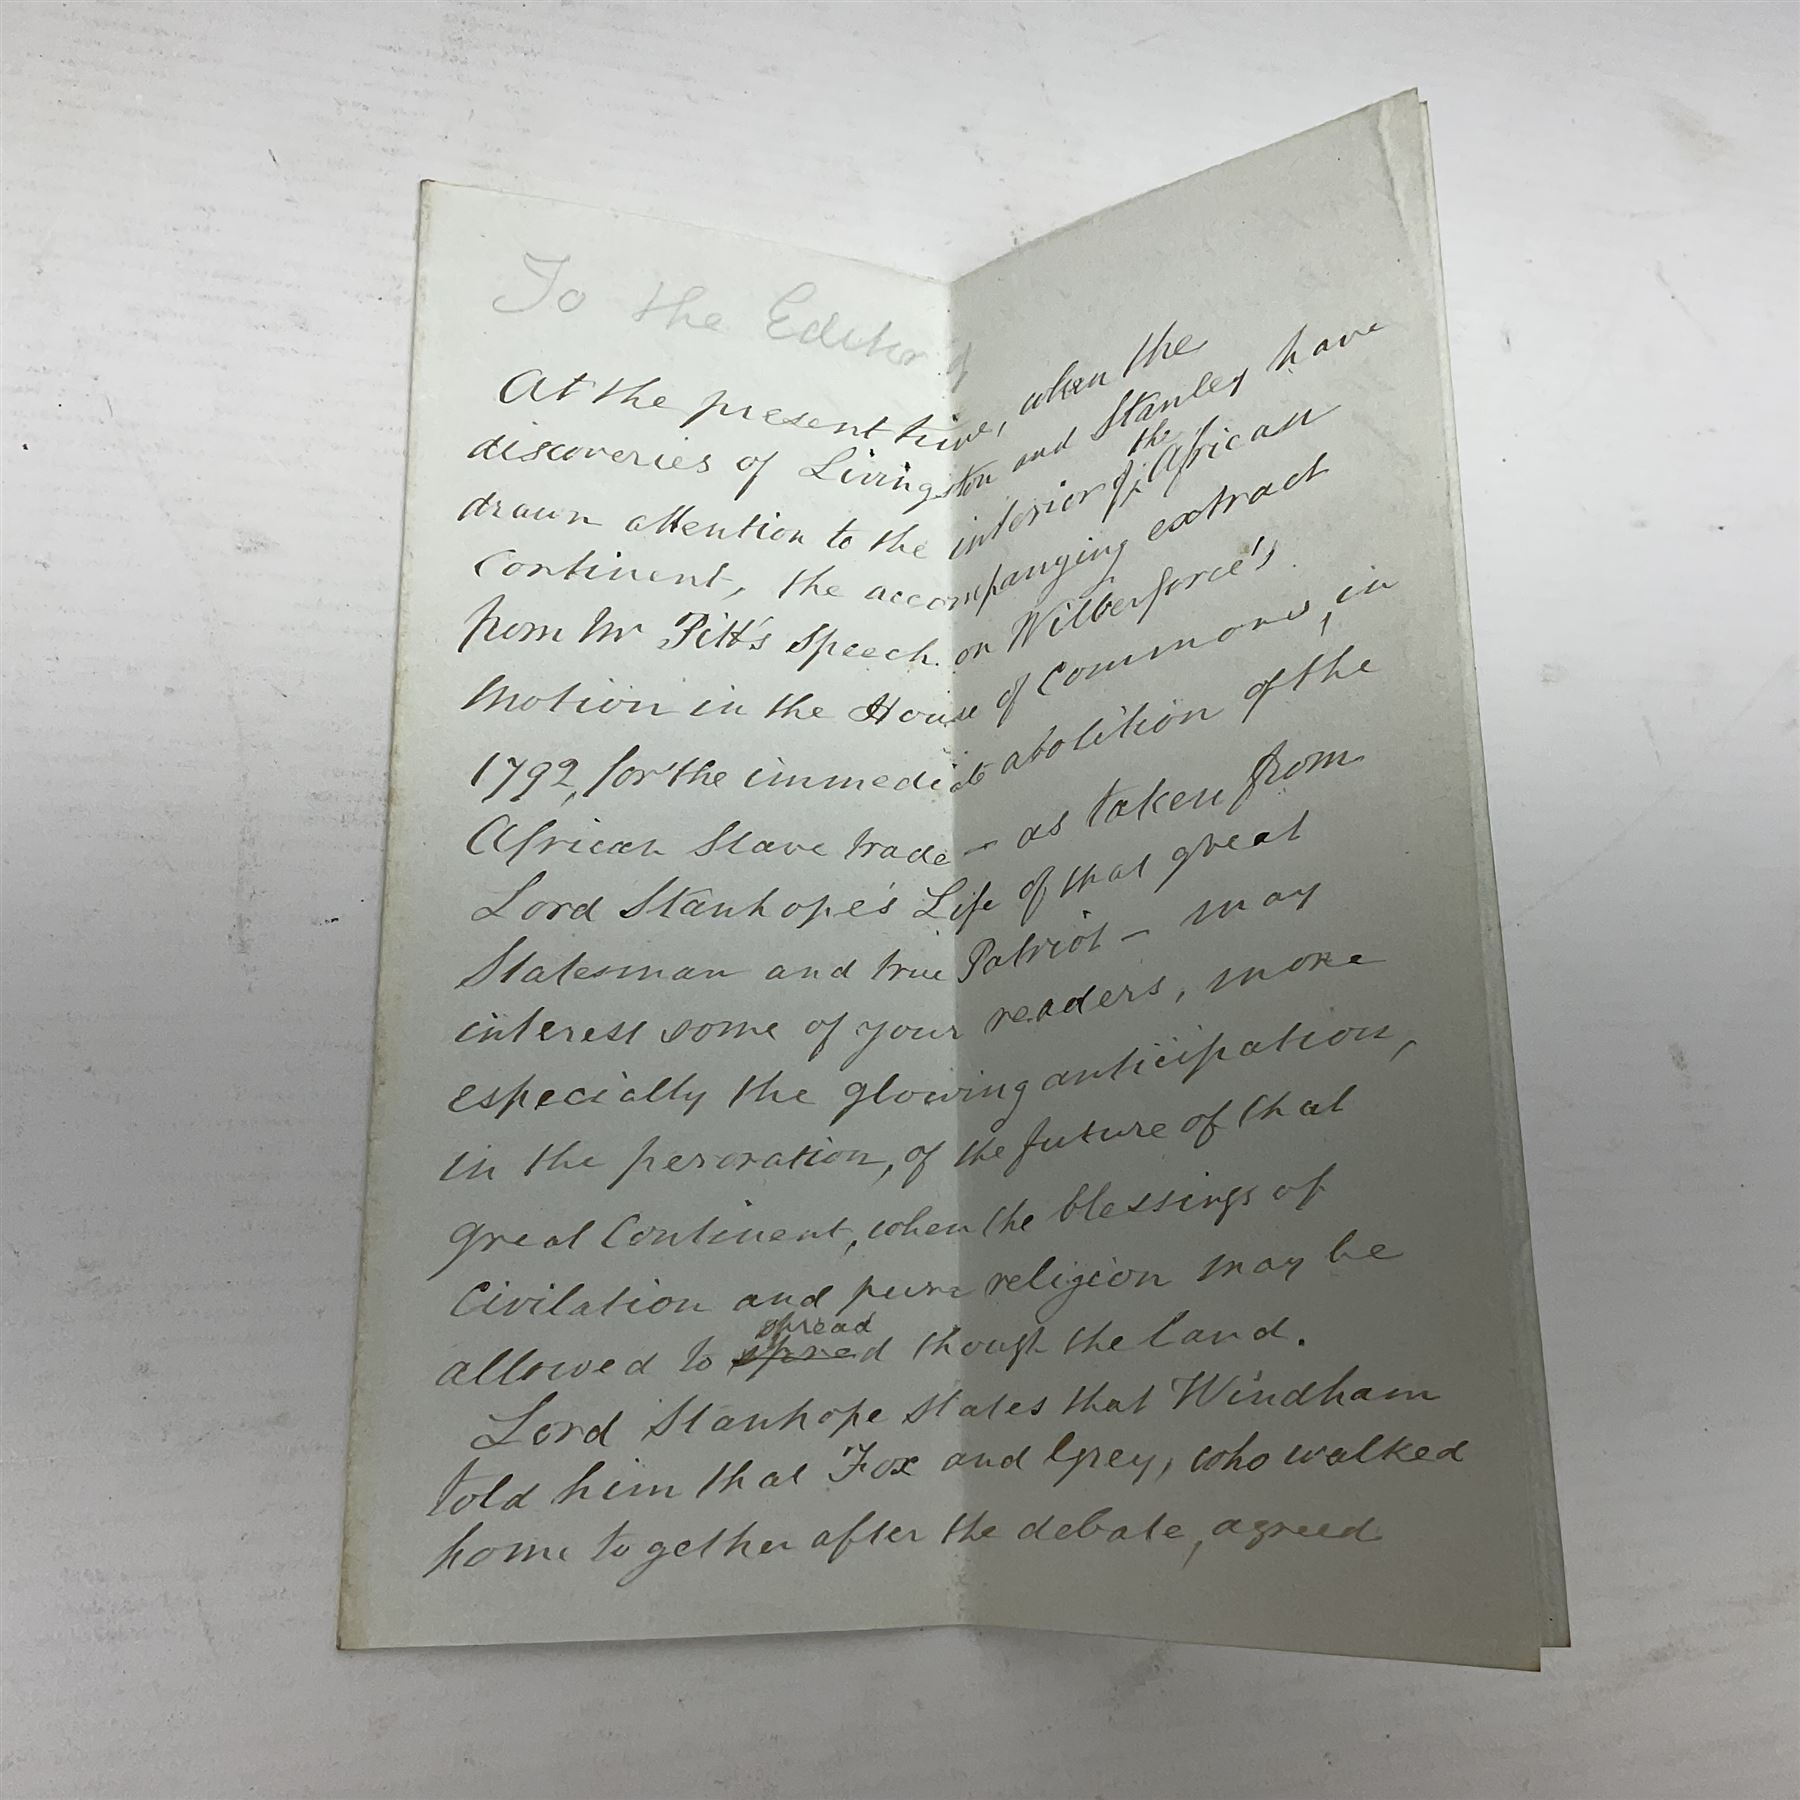 To the Editor of
At the present time, when the
discoveries of Livingston and Stanley have
drawn attention to the interior of the African
Continent, the accompanying extract
from Mr Pitt's speech on Wilberforce's
Motion in the House of Commons, in
1792, for the immediate abolition of the
African Slave trade – as taken from
Lord Stanhope's Life of that great
Statesman and true Patriot – may
interest some of your readers, more
especially the glowing anticipation,
in the peroration, of the future of that
great Continent, when the blessings of
Civilation and pure religion may be
allowed to spred spread though the land.
Lord Stanhope states that Windham
told him that Fox and Grey, who walked
home together after the debate, agreed